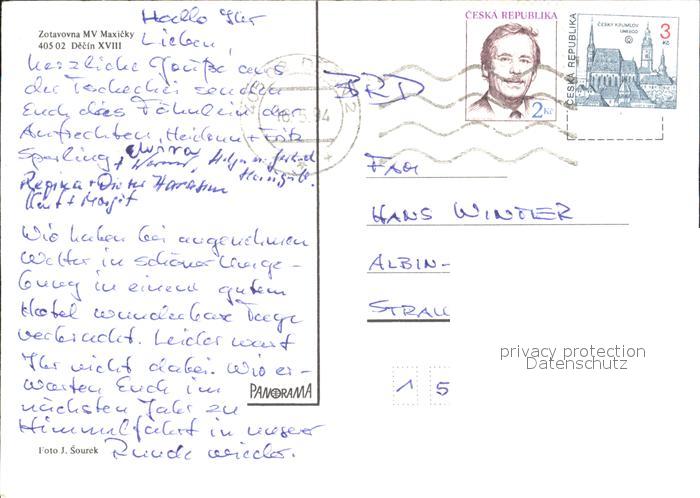 Zotavovna MV Maxičky
405 02 Děčín XVIII
Hallo Ihr
Lieben,
herzliche Grüße aus
der Tschechei senden
Euch das Fähnlein der
Aufrechten, Heidemn + Fritz
Sperling +
Regina + Dieter
Kurt + Margit
Wir haben bei angenehmen
Wetter in schöner Umge-
bung in einem guten
Hotel wunderbare Tage
verbracht. Leider wart
Ihr nicht dabei. Wir er-
warten Euch im
nächsten Jahr zu
Himmelfahrt in unserer
Runde wieder.
Foto J. Šourek
PANORAMA
BRD
ČESKÁ REPUBLIKA
2 Kč
ČESKÁ REPUBLIKA
ČESKÝ KRUMLOV
UNESCO
3
Kč
HANS WINTER
ALBIN-
1 5
privacy protection
Datenschutz